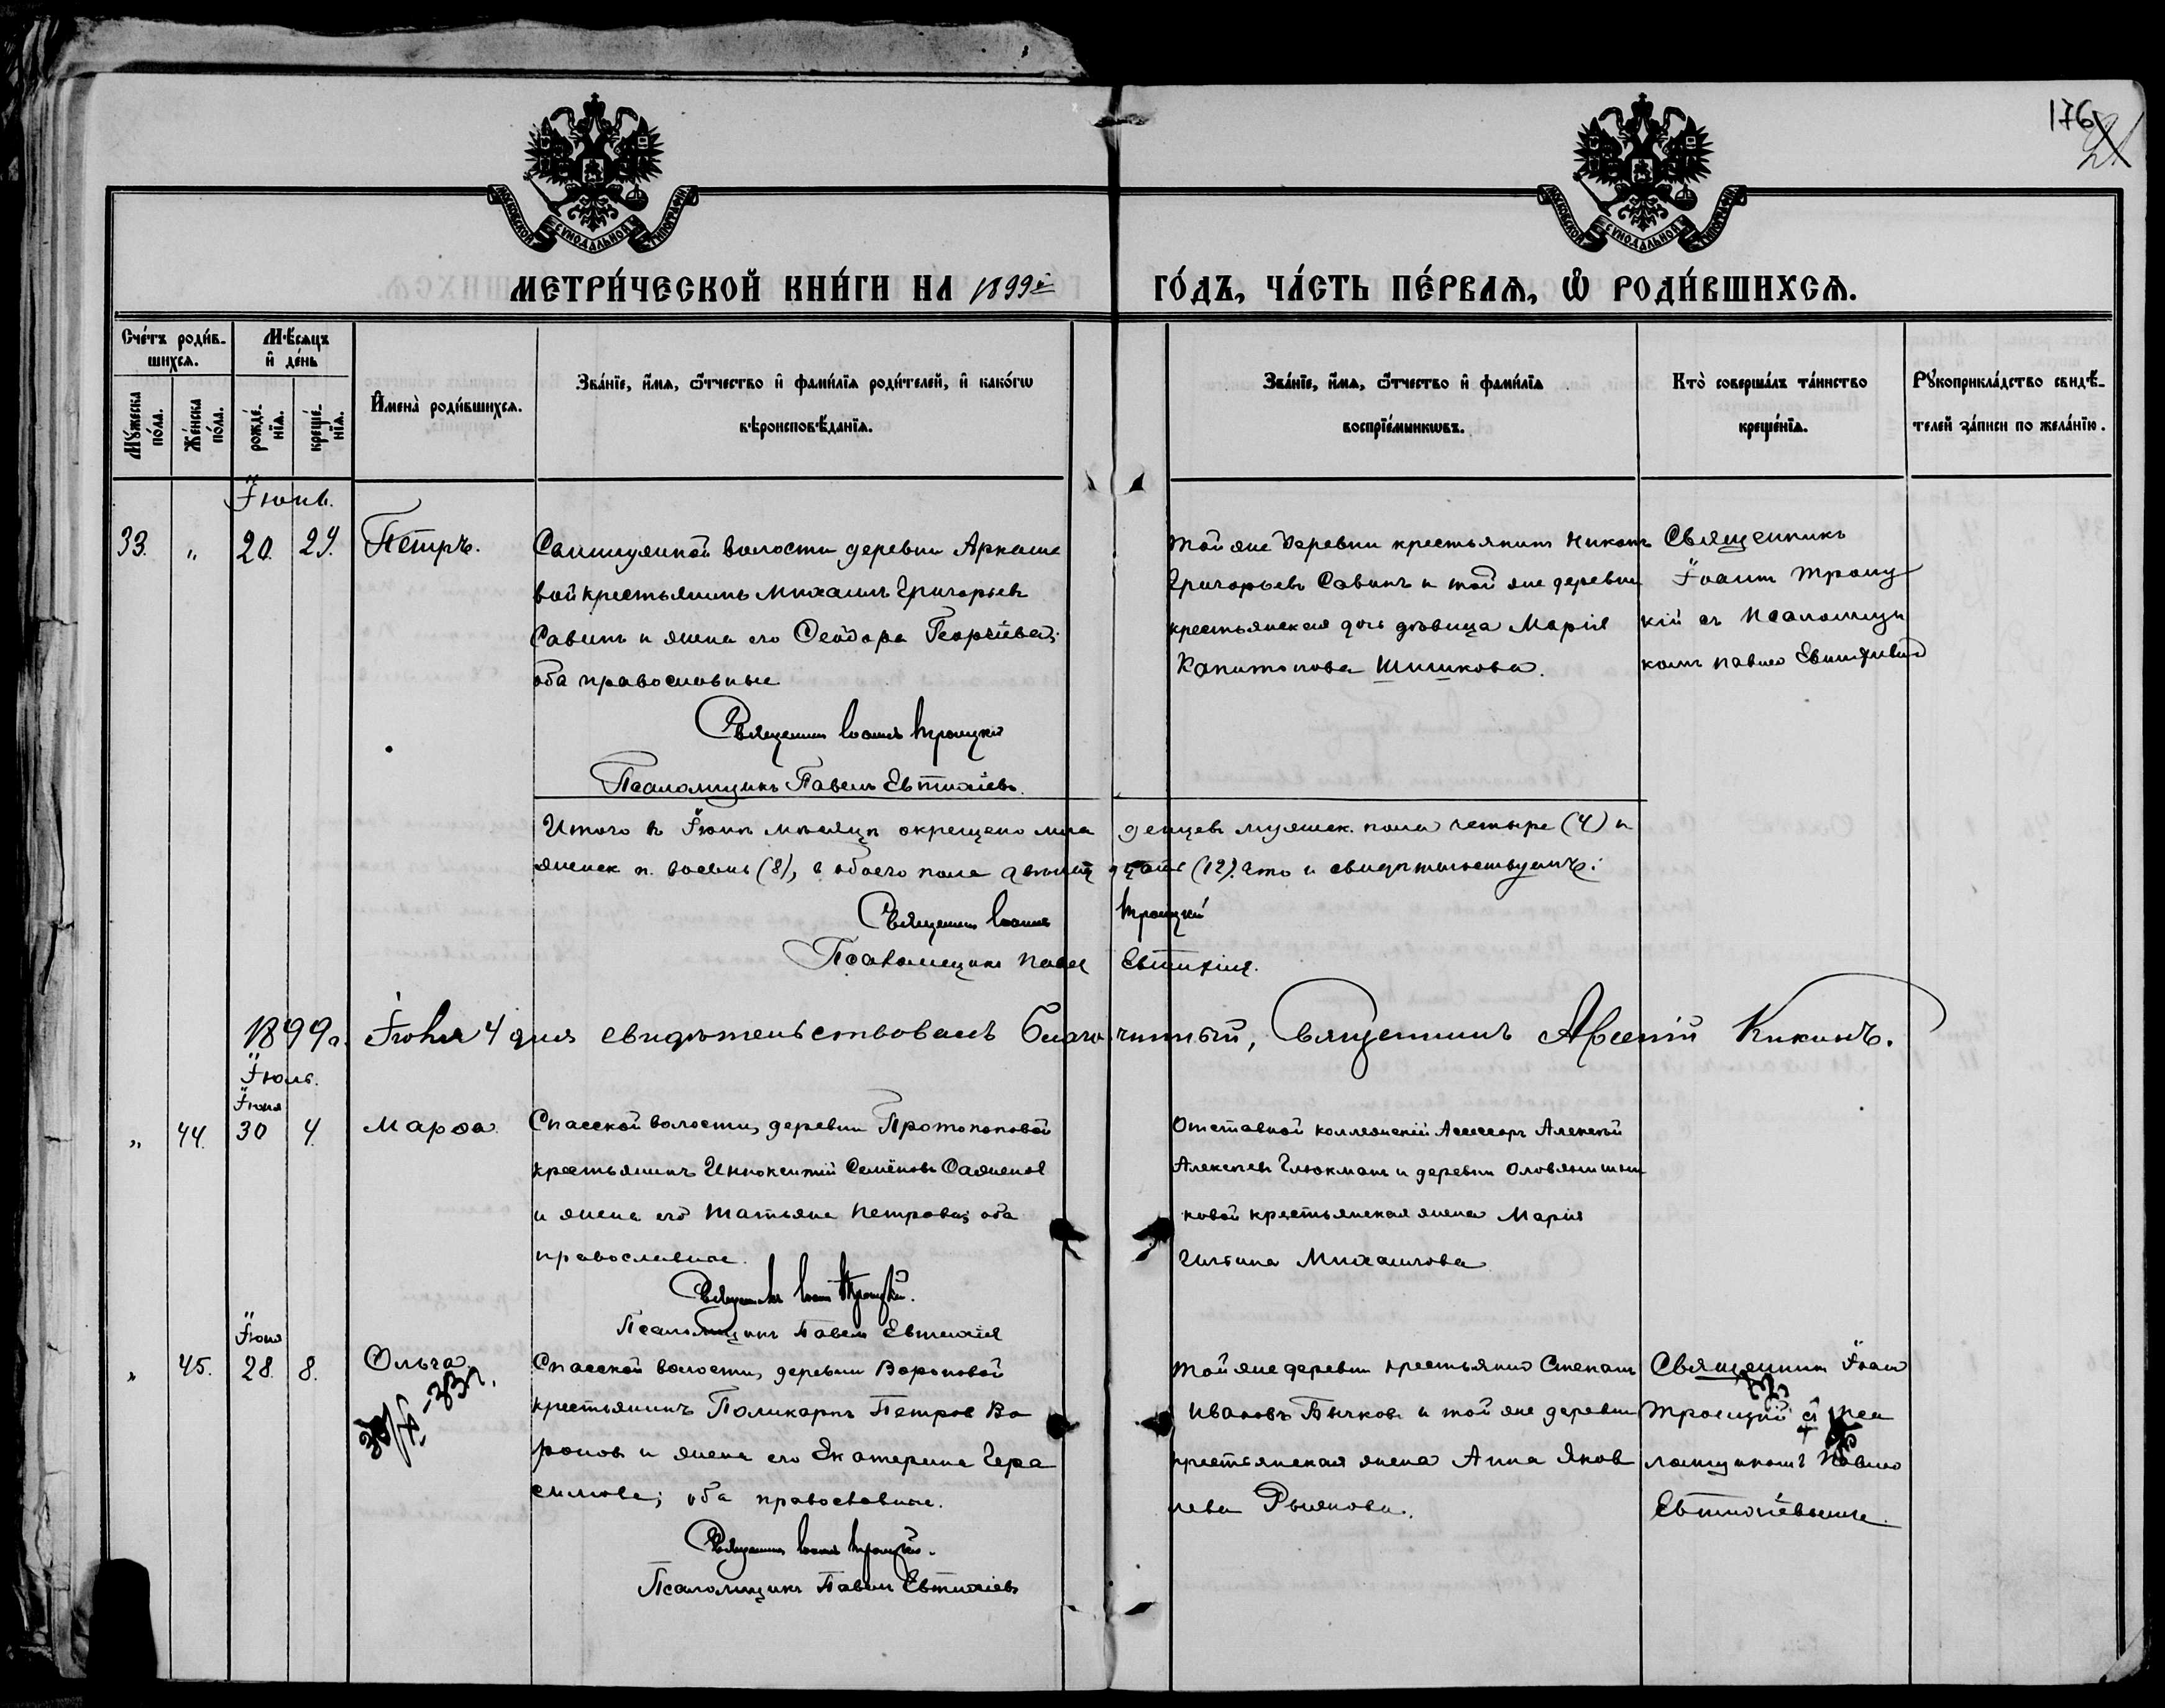 176
МОСКОВСКОЙ СѴНОДАЛЬНОЙ ТИПОГРАФІИ
МОСКОВСКОЙ СѴНОДАЛЬНОЙ ТИПОГРАФІИ
МЕТРИ́ЧЕСКОЙ КНИ́ГИ НА 1899й ГО́ДЪ, ЧА́СТЬ ПЕ́РВАѦ, Ѡ РОДИ́ВШИХСѦ.
Сче́тъ роди́в-
шихсѧ.
Мꙋ́жеска по́ла.
Же́нска по́ла.
Мѣ́сѧцъ
и҆ де́нь
рожде́-
нїѧ.
креще́-
нїѧ.
И҆мена̀ роди́вшихсѧ.
Зва́нїе, и҆́мѧ, ѻ҆́тчество и҆ фами́лїѧ роди́телей, и҆ како́гѡ
вѣроисповѣ́данїѧ.
Зва́нїе, и҆́мѧ, ѻ҆́тчество и҆ фами́лїѧ
воспрїе́мникѡвъ.
Кто̀ соверша́лъ та́инство
креще́нїѧ.
Рꙋкоприкла́дство свидѣ́-
телей за́писи по жела́нїю.
Іюнь.
33. „ 20. 29. Петръ.
волости деревни Аркаше
вой крестьянинъ Михаилъ Григорьевъ
Савинъ и жена его Ѳеодора Георгіева;
оба православные
Священникъ Іоаннъ Троицкій
Псаломщикъ Павелъ Евтихіевъ.
той же деревни крестьянинъ Никонъ
Григорьевъ Савинъ и той же деревни
крестьянская дочь дѣвица Марія
Капитонова Шишкова.
Священникъ
Іоаннъ Троиц
кій съ псаломщи
комъ Павломъ
Итого въ Іюнѣ мѣсяцѣ окрещено мла денцевъ мужеск. пола четыре (4) и
женск. п. восемь (8), а обоего пола двѣнад цать (12). Что и свидѣтельствуемъ:
Священникъ Іоаннъ Троицкій
Псаломщикъ Павел Евтихіев.
1899 г. Іюля 4 дня свидѣтельствовалъ Благо чинный, Священникъ Арсеній Кикинъ.
Іюль.
Іюня
„ 44. 30 4. Марѳа.
Спасской волости, деревни Протопоповой
крестьянинъ Иннокентій Семёновъ
и жена его Татьяна Петрова; оба
православные.
Священникъ Іоаннъ Троицкій.
Псаломщикъ Павелъ Евтихіев
Отставной коллежскій Ассесоръ Алексѣй
Алексѣевъ Глюкманъ и деревни Оловянишни
ковой крестьянская жена Марія
Михаилова
Іюня
„ 45. 28. 8. Ольга.
Спасской волости, деревни Вороновой
крестьянинъ Поликарпъ Петровъ Во
роновъ и жена его Екатерина Гера
симова; оба православные.
Священникъ Іоаннъ Троицкій.
Псаломщикъ Павелъ Евтихіевъ
той же деревни крестьянинъ Степанъ
Ивановъ Бычковъ и той же деревни
крестьянская жена Анна Яков
лева Рыжкова.
Священникъ Іоаннъ
Троицкій съ Пса
ломщикомъ Павломъ
Евтихіевымъ.